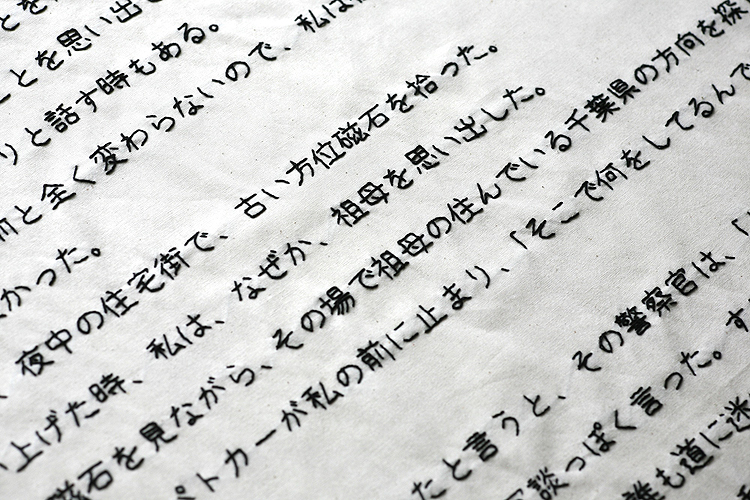 ことを思い出
りと話す時もある。
前と全く変わらないので、私は
かった。
夜中の住宅街で、古い方位磁石を拾った。
い上げた時、私は、なぜか、祖母を思い出した。
磁石を見ながら、その場で祖母の住んでいる千葉県の方向を探
パトカーが私の前に止まり、「そこで何をしてるんで
たと言うと、その警察官は、「
冗談っぽく言った。す
誰も道に迷